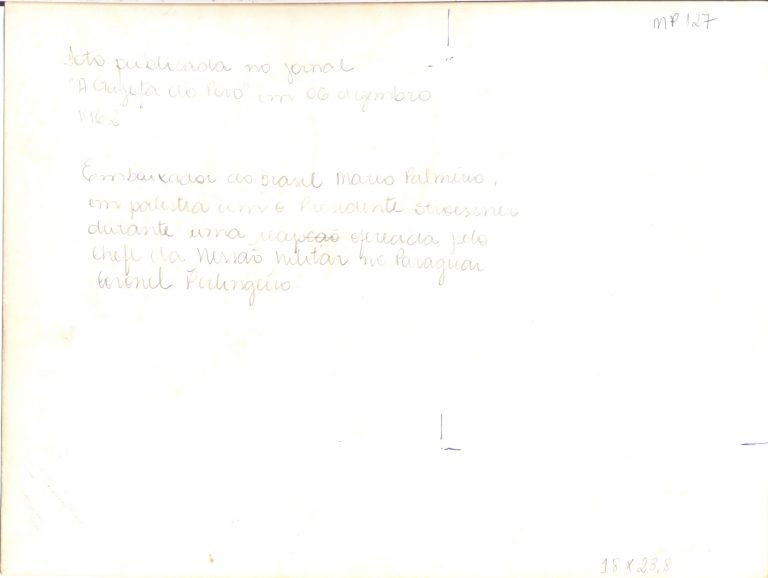 MP 127
Foto publicada no jornal
"A Gazeta do Povo" em 06 dezembro
1962
Embaixador do Brasil Mario Palmério,
em palestra com o Presidente Stroessner
durante uma recepção oferecida pelo
chefe da Missão militar no Paraguai
Coronel Perlingeiro.
18 x 23,8